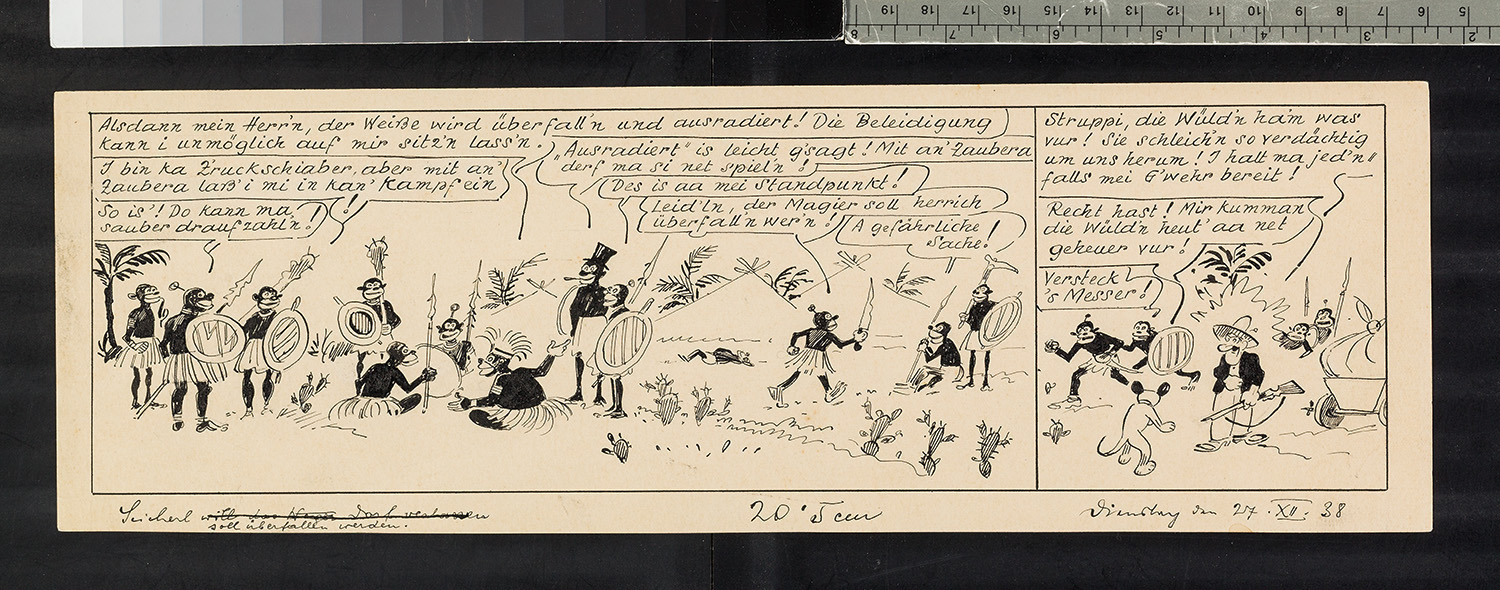 Alsdann mein Herr'n, der Weiße wird überfall'n und ausradiert! Die Beleidigung
kann i unmöglich auf mir sitz'n lass'n.
I bin ka Z'ruckschiaber, aber mit an'
Zaubera laß' i mi in kan' Kampf ein
!
So is'! Do kann ma
sauber draufzahl'n!
„Ausradiert" is leicht g'sagt! Mit an' Zaubera
derf ma si net spiel'n!
Des is aa mei Standpunkt!
Leid'ln, der Magier soll herrich
überfall'n wer'n!
A gefährliche
Sache!
Struppi, die Wüld'n ha'm was
vur! Sie schleich'n so verdächtig
um uns herum! I halt ma jed'n"
falls mei G'wehr bereit!
Recht hast! Mir kumman
die Wüld'n heut' aa net
geheuer vur!
Versteck
's Messer!
Seicherl
soll überfallen werden.
20.5 cm
Dienstag den 27. XII. 38
19 18 17 16 15 14 13 12 11 10 9 8 7 6 5
8 7 6 5 4 3 2